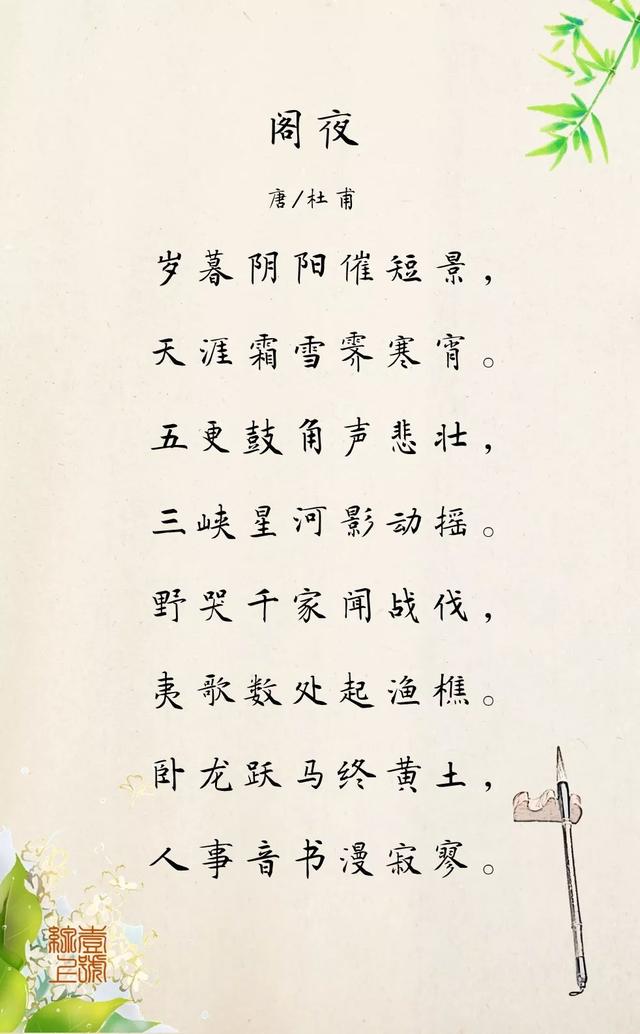 阁夜
唐/杜甫
岁暮阴阳催短景，
天涯霜雪霁寒宵。
五更鼓角声悲壮，
三峡星河影动摇。
野哭千家闻战伐，
夷歌数处起渔樵。
卧龙跃马终黄土，
人事音书漫寂寥。